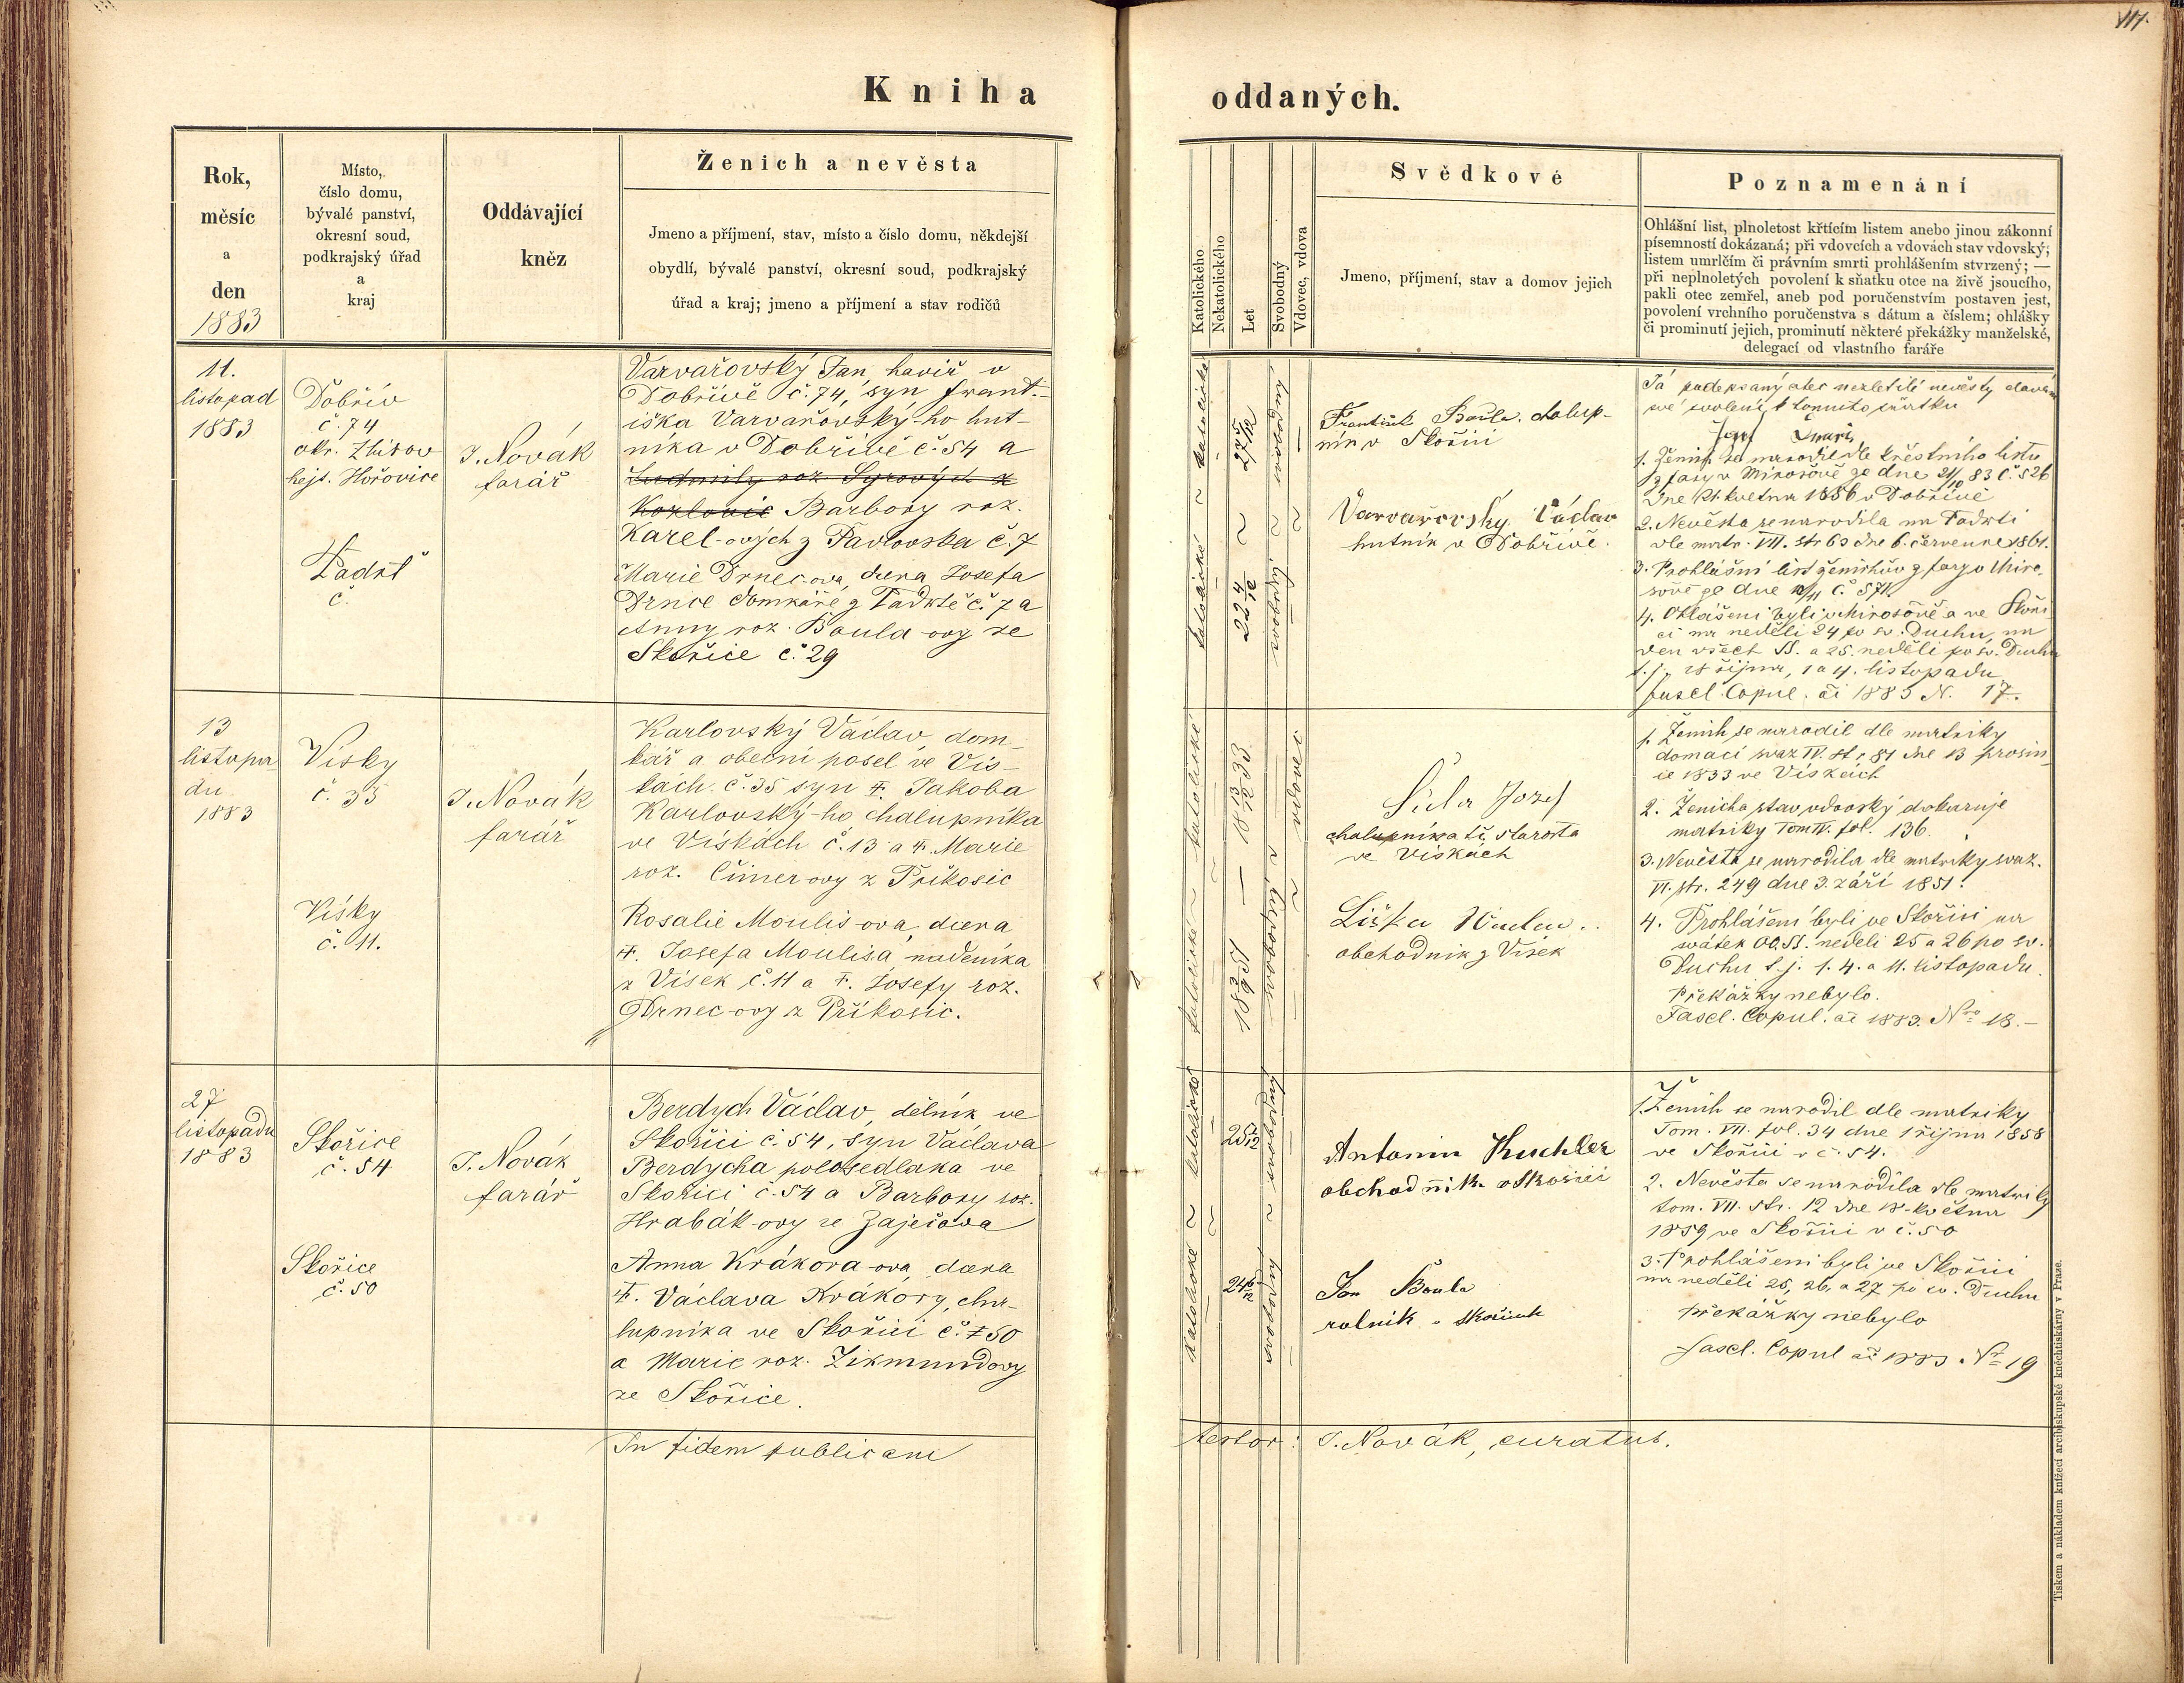 117.
Kniha oddaných.
Rok,
měsíc
a
den
1883
Místo,
číslo domu,
bývalé panství,
okresní soud,
podkrajský úřad
a
kraj
Oddávající
kněz
Ženich a nevěsta
Jmeno a příjmení, stav, místo a číslo domu, někdejší
obydlí, bývalé panství, okresní soud, podkrajský
úřad a kraj; jmeno a příjmení a stav rodičů
Katolického
Nekatolického
Let
Svobodný
Vdovec, vdova
Svědkové
Jmeno, příjmení, stav a domov jejich
Poznamenání
Ohlášní list, plnoletost křtícím listem anebo jinou zákonní
písemností dokázaná; při vdovcích a vdovách stav vdovský;
listem umrlčím či právním smrti prohlášením stvrzený; —
při neplnoletých povolení k sňatku otce na živě jsoucího,
pakli otec zemřel, aneb pod poručenstvím postaven jest,
povolení vrchního poručenstva s dátum a číslem; ohlášky
či prominutí jejich, prominutí některé překážky manželské,
delegací od vlastního faráře
11.
listopad
1883
Dobřív
č. 74
okr. Zbirov
hejt. Hořovice
Padrť
č.
J. Novák
farář
Varvařovský Jan, havíř v
Dobřívě č. 74, syn Frant-
iška Varvařovský-ho hut-
níka v Dobřívě č. 54 a
Ludmily roz. Syrových z
Barbory roz.
Karel-ových z Pavlovska č. 7
Marie Drnec-ova, dcera Josefa
Drnce domkáře z Padrtě č. 7 a
Anny roz. Boula-ovy ze
Skořice č. 29
katolické ~ katolické
27 5/12
22 4/12
svobodná ~ svobodný
František Boula, chalup-
ník v Skořici
Varvařovský Václav
hutník v Dobřívě.
Já podepsaný otec nezletilé nevěsty dávám
své svolení k tomuto sňatku
1. Ženich se narodil dle křestního listu
z fary v Mirošově ze dne 21/10 83 č. 526
v Dobřívě
2. Nevěsta se narodila na Padrti
dle matr. VII. str 63 dne 6. července 1861.
3. Prohlášní list ženichův z fary v Miro-
šově ze dne č. 571.
4. Ohlášeni byli v Mirošově a ve Skoři-
ci na neděli 24 po sv. Duchu, na
den všech SS. a 25. neděli po sv. Duchu
t. j. 28 října, 1 a 4. listopadu
Fascl. Copul. ai 1883 N. 17.
13
listopa-
du
1883
Vísky
č. 35
Vísky
č. 11.
J. Novák
farář
Karlovský Václav, dom-
kář a obecní posel ve Vís-
kách č. 35 syn †. Jakoba
Karlovský-ho, chalupníka
ve Vískách č. 13 a †. Marie
roz. Cimer-ovy z Příkosic
Rosalie Moulis-ova, dcera
†. Josefa Moulisa nádeníka
z Vísek č. 11 a †. Josefy roz.
Drnec-ovy z Příkosic.
katolické ~ katolické
18 13/12 33
18 3/9 51
svobodná ~ vdovec
Šůla Josef
chalupník a t.č. starosta
ve Vískách
Liška Václav
obchodník z Vísek
1. Ženich se narodil dle matriky
domácí svaz IV. str 81 dne 13 prosin-
ce 1833 ve Vískách
2. Ženicha stav vdovský dokazuje
matriky Tom IV. fol. 136.
3. Nevěsta se narodila dle matriky svaz.
VI. str. 249 dne 3. září 1851.
4. Prohlášeni byli ve Skořici na
svátek OO.SS. neděli 25 a 26 po sv.
Duchu t. j. 1. 4. a 11. listopadu.
Překážky nebylo.
Fascl. Copul. ai 1883. Nro 18.–
27
listopadu
1883
Skořice
č. 54
Skořice
č. 50
J. Novák
farář
Berdych Václav, dělník ve
Skořici č. 54, syn Václava
Berdycha polosedláka ve
Skořici č. 54 a Barbory roz.
Hrabák-ovy ze Zaječova
Anna Krákora-ova, dcera
†. Václava Krákory, cha-
lupníka ve Skořici č. 50
a Marie roz. Zikmundovy
ze Skořice.
katolické ~ katolické
25 1/12
24 6/12
svobodná ~ svobodný
Antonin Kuchler
obchodník v Skořici
Jan Boula
rolník v Skořicích
1. Ženich se narodil dle matriky
Tom. VII. fol. 34 dne 1 října 1858
ve Skořici v č. 54.
2. Nevěsta se narodila dle matriky
tom. VII. str. 12 dne 18. května
1859 ve Skořici v č. 50
3. Prohlášeni byli ve Skořici
na neděli 25, 26, a 27 po sv. Duchu
překážky nebylo
Fascl. Copul ai 1883. Nr 19
In fidem publicam testor: J. Novák, curatus.
Tiskem a nákladem knížecí arcibiskupské kněhtiskárny v Praze.